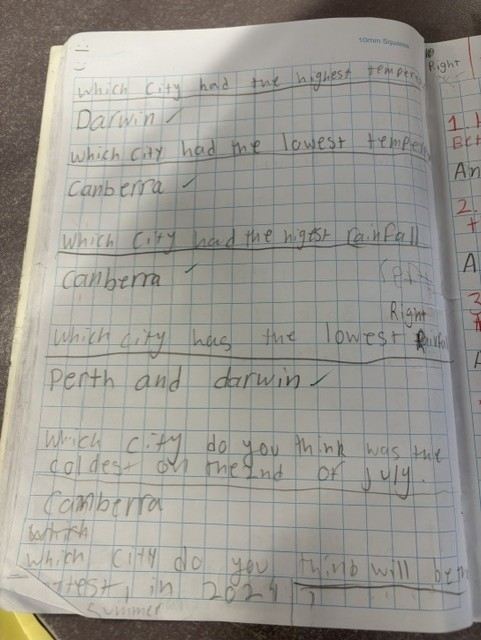 10mm Squares
which city had the highest temper
Darwin ✓
which city had the lowest temper
Canberra ✓
which city had the higest rainfall
Canberra ✓
Right
which city has the lowest Rainfal
Perth and darwin ✓
which city do you think was the
coldest on the 2nd of july.
Camberra
which city do you think will be
ttest, in 2024
summer
Right
1
An
2.
A
3